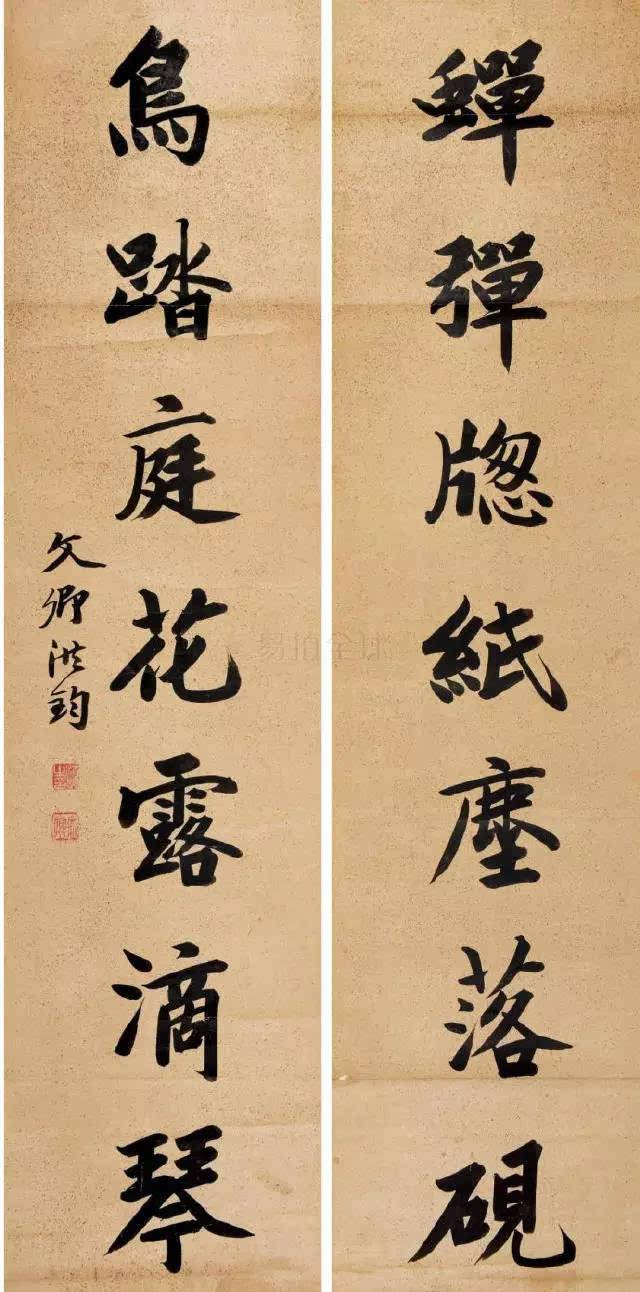 蟬彈牕紙塵落硯
鳥踏庭花露滴琴
文卿洪鈞
易拍全球